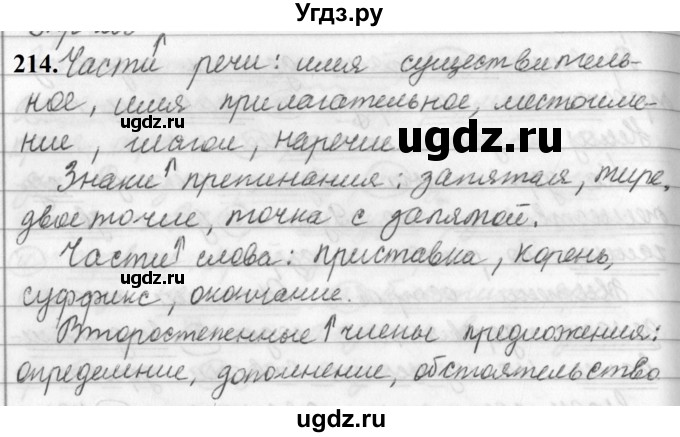 Угдз.ру
214. Части речи: имя существитель-
ное, имя прилагательное, местоиме-
ugdz.ru
ние, глагол, наречие
ugdz.ru
Знаки препинания: запятая, тире,
двоеточие, точка с запятой.
ugdz.ru
Части слова: приставка, корень,
ugdz.ru
суффикс, окончание.
Второстепенные члены предложения:
ugdz.ru
определение, дополнение, обстоятельство
ugdz.ru